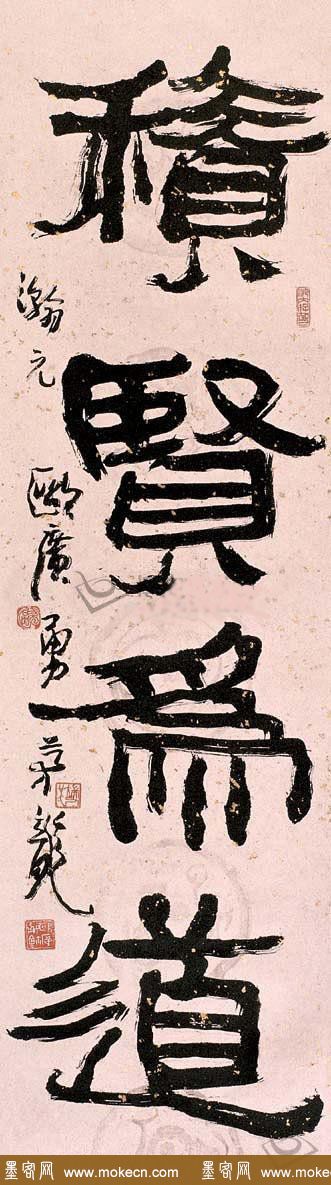 積賢爲道
瀚元
歐廣勇
墨客网 www.mokecn.com 墨客网 www.mokecn.com